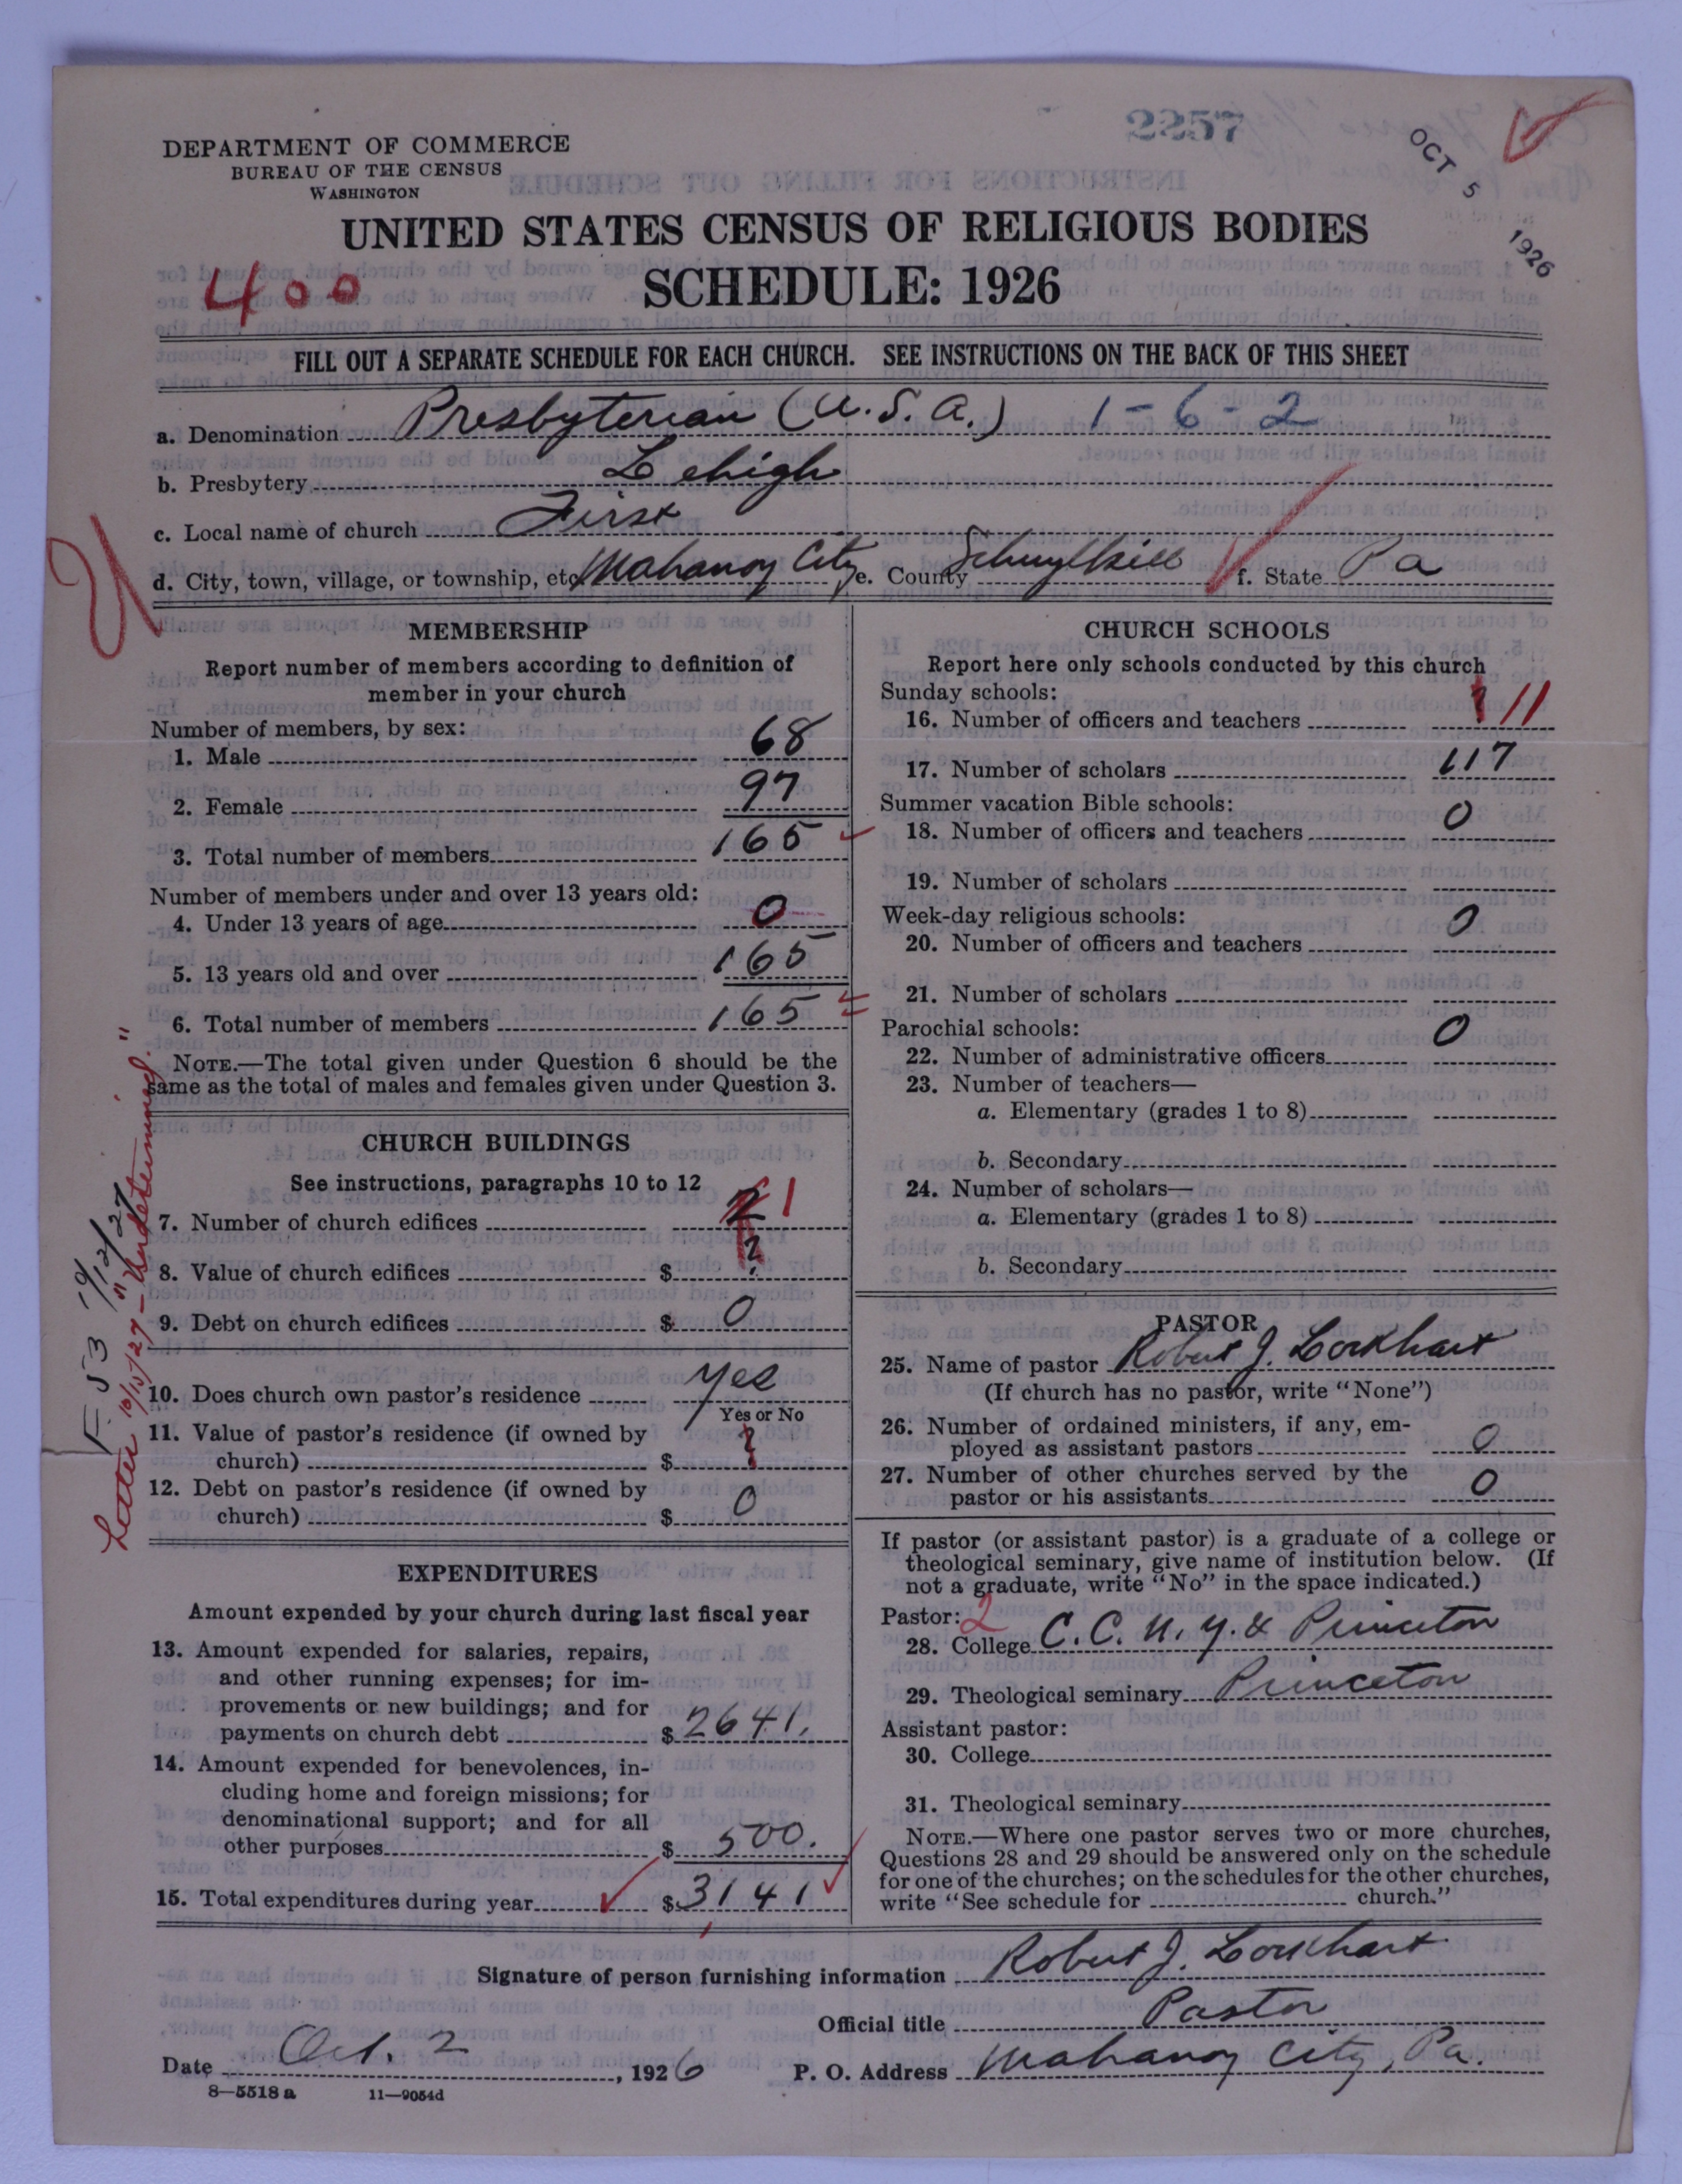 2257
OCT 5 1926
DEPARTMENT OF COMMERCE
BUREAU OF THE CENSUS
WASHINGTON
UNITED STATES CENSUS OF RELIGIOUS BODIES
400
SCHEDULE: 1926
FILL OUT A SEPARATE SCHEDULE FOR EACH CHURCH. SEE INSTRUCTIONS ON THE BACK OF THIS SHEET
a. Denomination Presbyterian (U.S.A.) 1-6-2
b. Presbytery Lehigh
c. Local name of church First
d. City, town, village, or township, etc. Mahanoy City e. County Schuylkill f. State Pa
MEMBERSHIP
Report number of members according to definition of
member in your church
Number of members, by sex:
1. Male 68
2. Female 97
3. Total number of members 165
Number of members under and over 13 years old:
4. Under 13 years of age 0
5. 13 years old and over 165
6. Total number of members 165
NOTE.—The total given under Question 6 should be the
same as the total of males and females given under Question 3.
CHURCH BUILDINGS
See instructions, paragraphs 10 to 12
7. Number of church edifices 2 1
8. Value of church edifices $ ?
9. Debt on church edifices $ 0
10. Does church own pastor's residence Yes
Yes or No
11. Value of pastor's residence (if owned by
church) $ ?
12. Debt on pastor's residence (if owned by
church) $ 0
EXPENDITURES
Amount expended by your church during last fiscal year
13. Amount expended for salaries, repairs,
and other running expenses; for im-
provements or new buildings; and for
payments on church debt $ 2641.
14. Amount expended for benevolences, in-
cluding home and foreign missions; for
denominational support; and for all
other purposes $ 500.
15. Total expenditures during year $ 3141
F. 53 9/12/27
Letter 10/15/27 - "Undetermined."
CHURCH SCHOOLS
Report here only schools conducted by this church
Sunday schools:
16. Number of officers and teachers ? 11
17. Number of scholars 117
Summer vacation Bible schools:
18. Number of officers and teachers 0
19. Number of scholars
Week-day religious schools:
20. Number of officers and teachers 0
21. Number of scholars
Parochial schools:
22. Number of administrative officers 0
23. Number of teachers—
a. Elementary (grades 1 to 8)
b. Secondary
24. Number of scholars—
a. Elementary (grades 1 to 8)
b. Secondary
PASTOR
25. Name of pastor Robert J. Lockhart
(If church has no pastor, write "None")
26. Number of ordained ministers, if any, em-
ployed as assistant pastors 0
27. Number of other churches served by the
pastor or his assistants 0
If pastor (or assistant pastor) is a graduate of a college or
theological seminary, give name of institution below. (If
not a graduate, write "No" in the space indicated.)
Pastor: 2
28. College C. C. N. Y. & Princeton
29. Theological seminary Princeton
Assistant pastor:
30. College
31. Theological seminary
NOTE.—Where one pastor serves two or more churches,
Questions 28 and 29 should be answered only on the schedule
for one of the churches; on the schedules for the other churches,
write "See schedule for church."
Signature of person furnishing information Robert J. Lockhart
Official title Pastor
Date Oct. 2, 1926 P. O. Address Mahanoy City, Pa.
8—5518 a 11—9054d